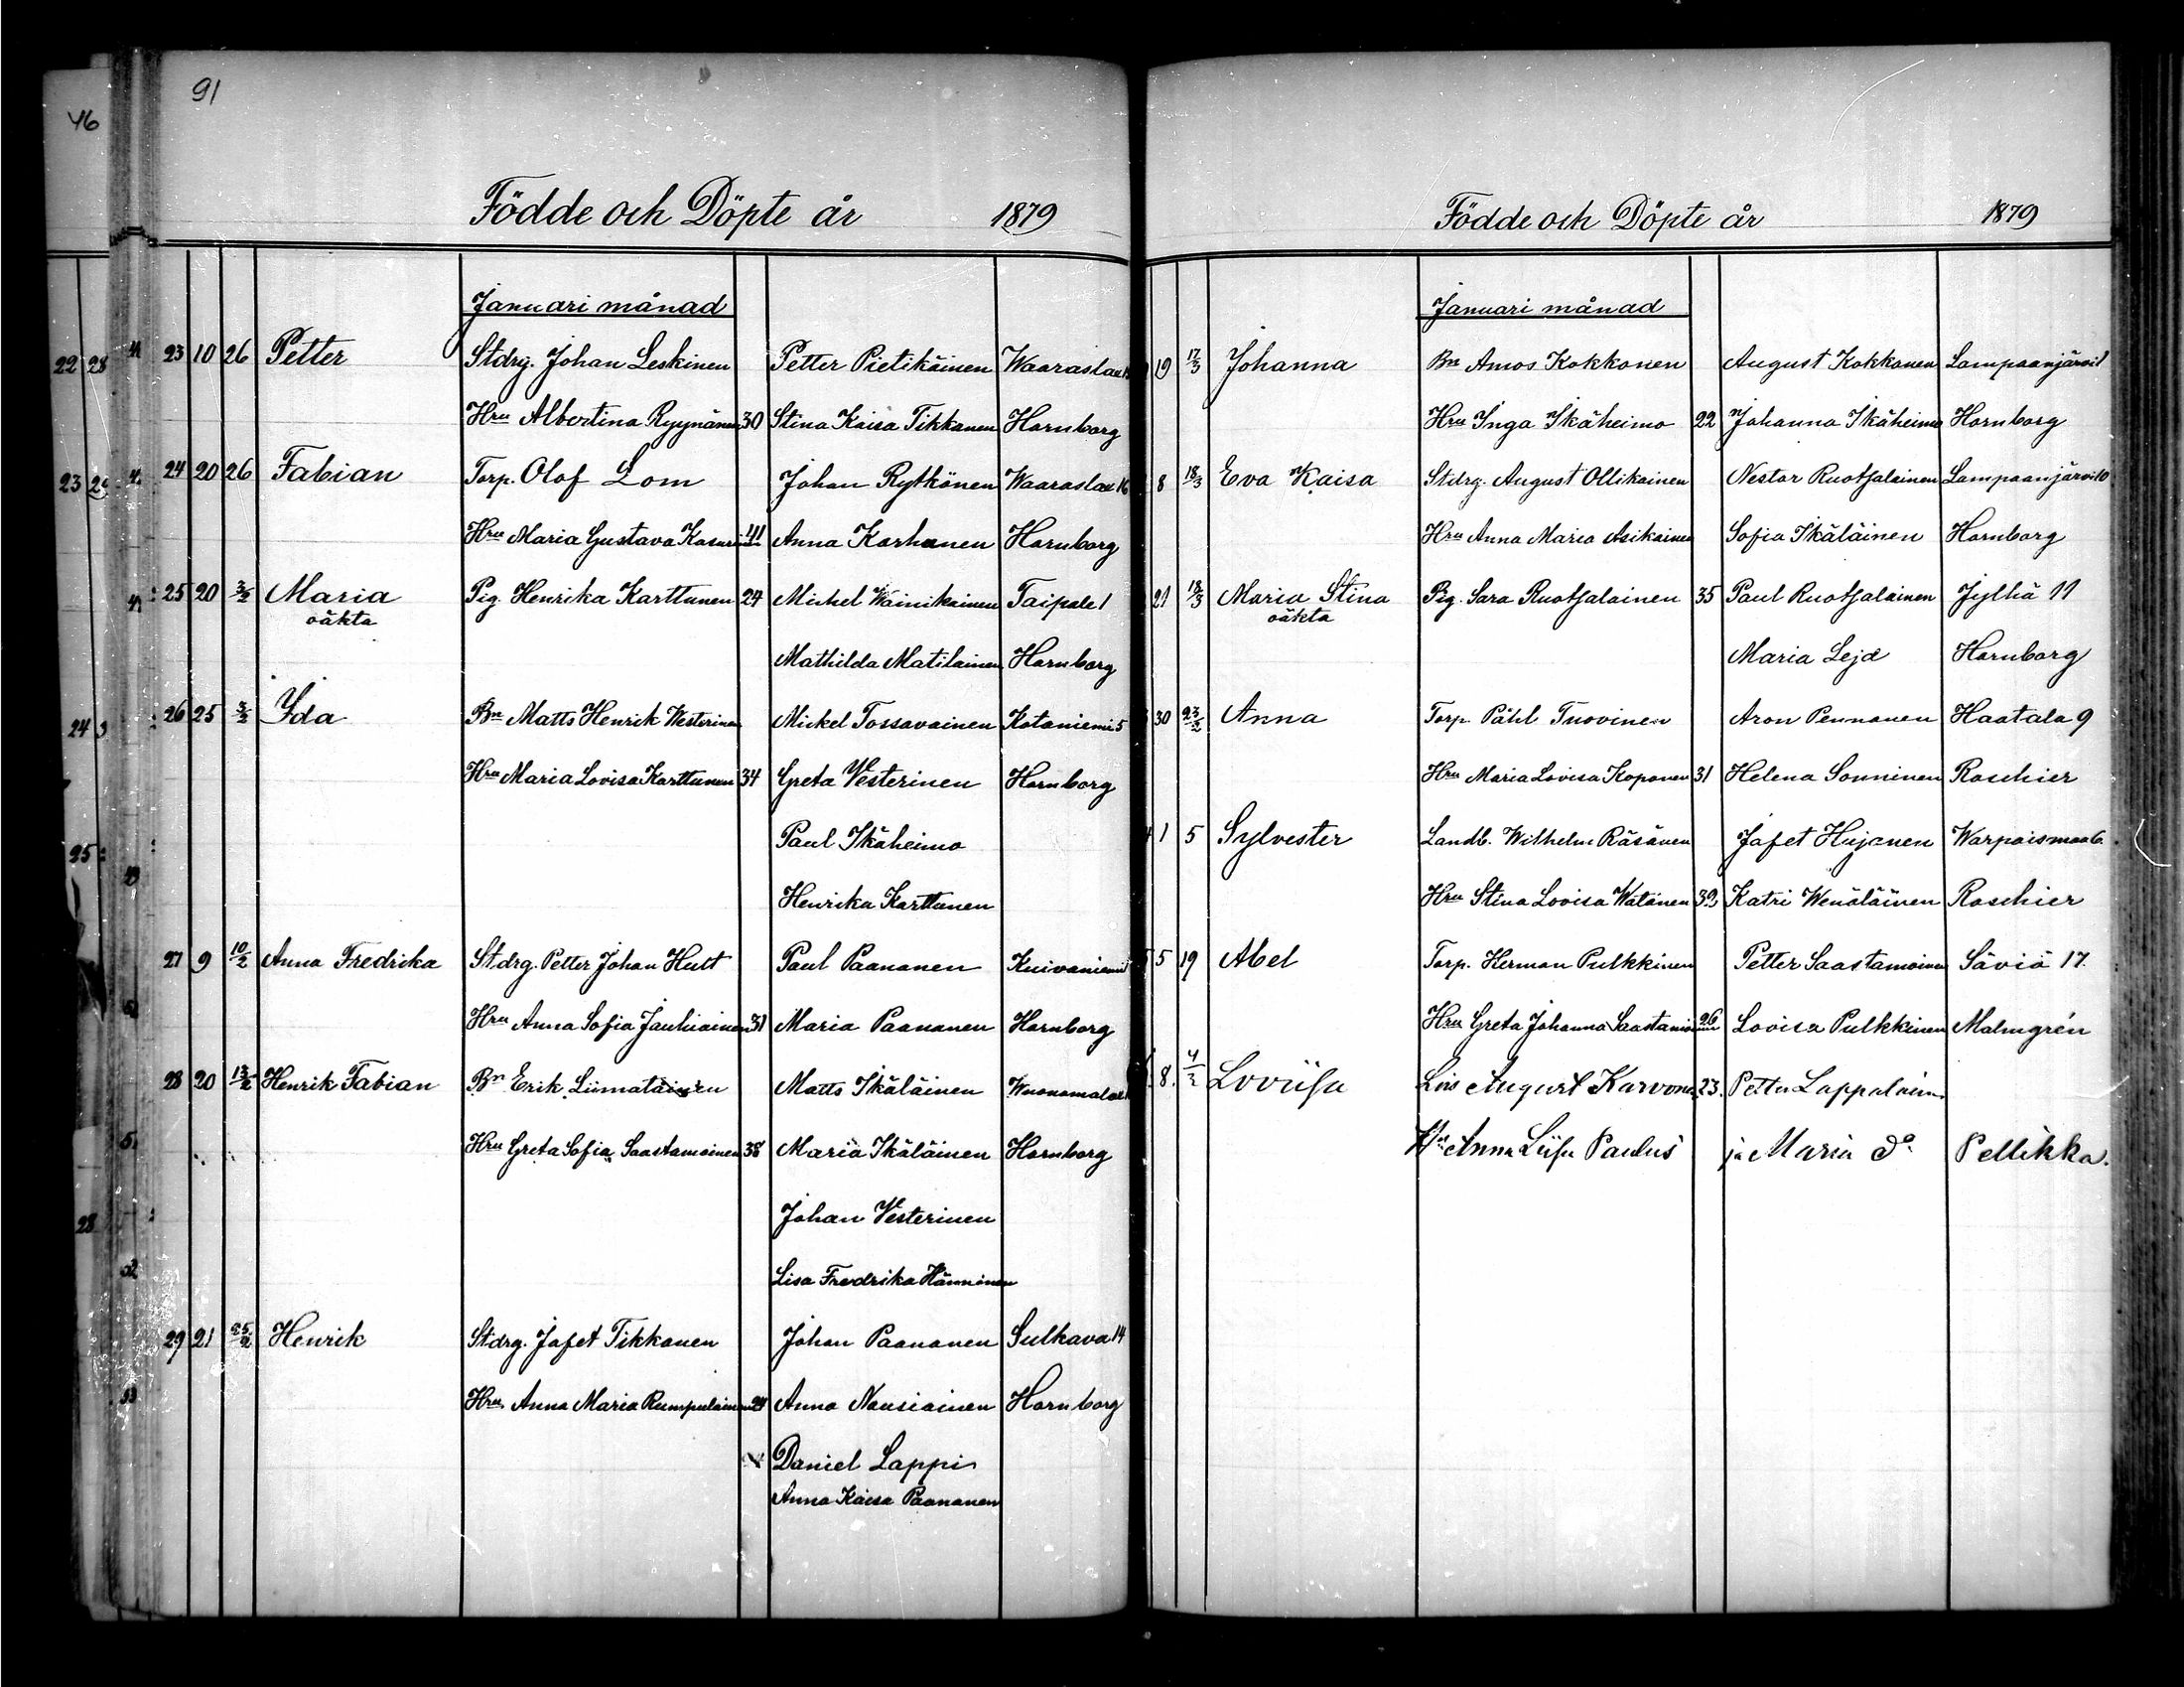 91
46
Födde och Döpte år 1879
Januari månad
23 10 26 Petter Stdrg. Johan Leskinen Petter Pietikäinen Waaraslax
Hru Albertina Ryynänen 30 Stina Kaisa Tikkanen Hornborg
24 20 26 Fabian Torp. Olof Lom Johan Rytkönen Waaraslax 16
Hru Maria Gustava Kasurinen 41 Anna Karhunen Hornborg
25 20 3/2 Maria Pig. Henrika Karttunen 24 Michel Wainikainen Taipale 1
oäkta
Mathilda Matilainen Hornborg
26 25 3/2 Ida Bn Matts Henrik Westerinen Mickel Tossavainen Kotaniemi 5
Hru Maria Lovisa Karttunen 34 Greta Vesterinen Hornborg
Paul Ikäheimo
Henrika Karttunen
27 9 10/2 Anna Fredrika Stdrg. Petter Johan Hutt Paul Paananen Kuivaniemi
Hru Anna Sofia Jauhiainen 31 Maria Paananen Hornborg
28 20 13/2 Henrik Fabian Bn Erik Liimatainen Matts Ikäläinen Wuonamalax
Hru Greta Sofia Saastamoinen 38 Maria Ikäläinen Hornborg
Johan Vesterinen
Lisa Fredrika Hänninen
29 21 25/2 Henrik Stdrg. Jafet Tikkanen Johan Paananen Sulkava 14
Hru Anna Maria Rumpulainen 24 Anna Nousiainen Hornborg
Daniel Lappi
Anna Kaisa Paananen
Födde och Döpte år 1879
Januari månad
19 17/3 Johanna Bn Amos Kokkonen August Kokkonen Lampaanjärvi 1
Hru Inga Ikäheimo 22 Johanna Ikäheimo Hornborg
8 18/3 Eva Kaisa Stdrg. August Ollikainen Nestor Ruotsalainen Lampaanjärvi 10
Hru Anna Maria Asikainen Sofia Ikäläinen Hornborg
21 18/3 Maria Stina Pig. Sara Ruotsalainen 35 Paul Ruotsalainen Jylhä 11
oäkta
Maria Lejd Hornborg
30 23/2 Anna Torp. Påhl Tuovinen Aron Pennanen Haatala 9
Hru Maria Lovisa Koponen 31 Helena Sonninen Roschier
1 5 Sylvester Landb. Wilhelm Räsänen Jafet Hujanen Warpaismaa 6.
Hru Stina Lovisa Watanen 39 Katri Wenäläinen Roschier
5 19 Abel Torp. Herman Pulkkinen Petter Saastamoinen Säviä 17.
Hru Greta Johanna Saastamoinen 26 Lovisa Pulkkinen Malmgrén
8. 4/2 Loviisa Lois August Karvonen 23. Petter Lappalain.
Hn Anna Liisa Paulus ja Maria do Pellikka.